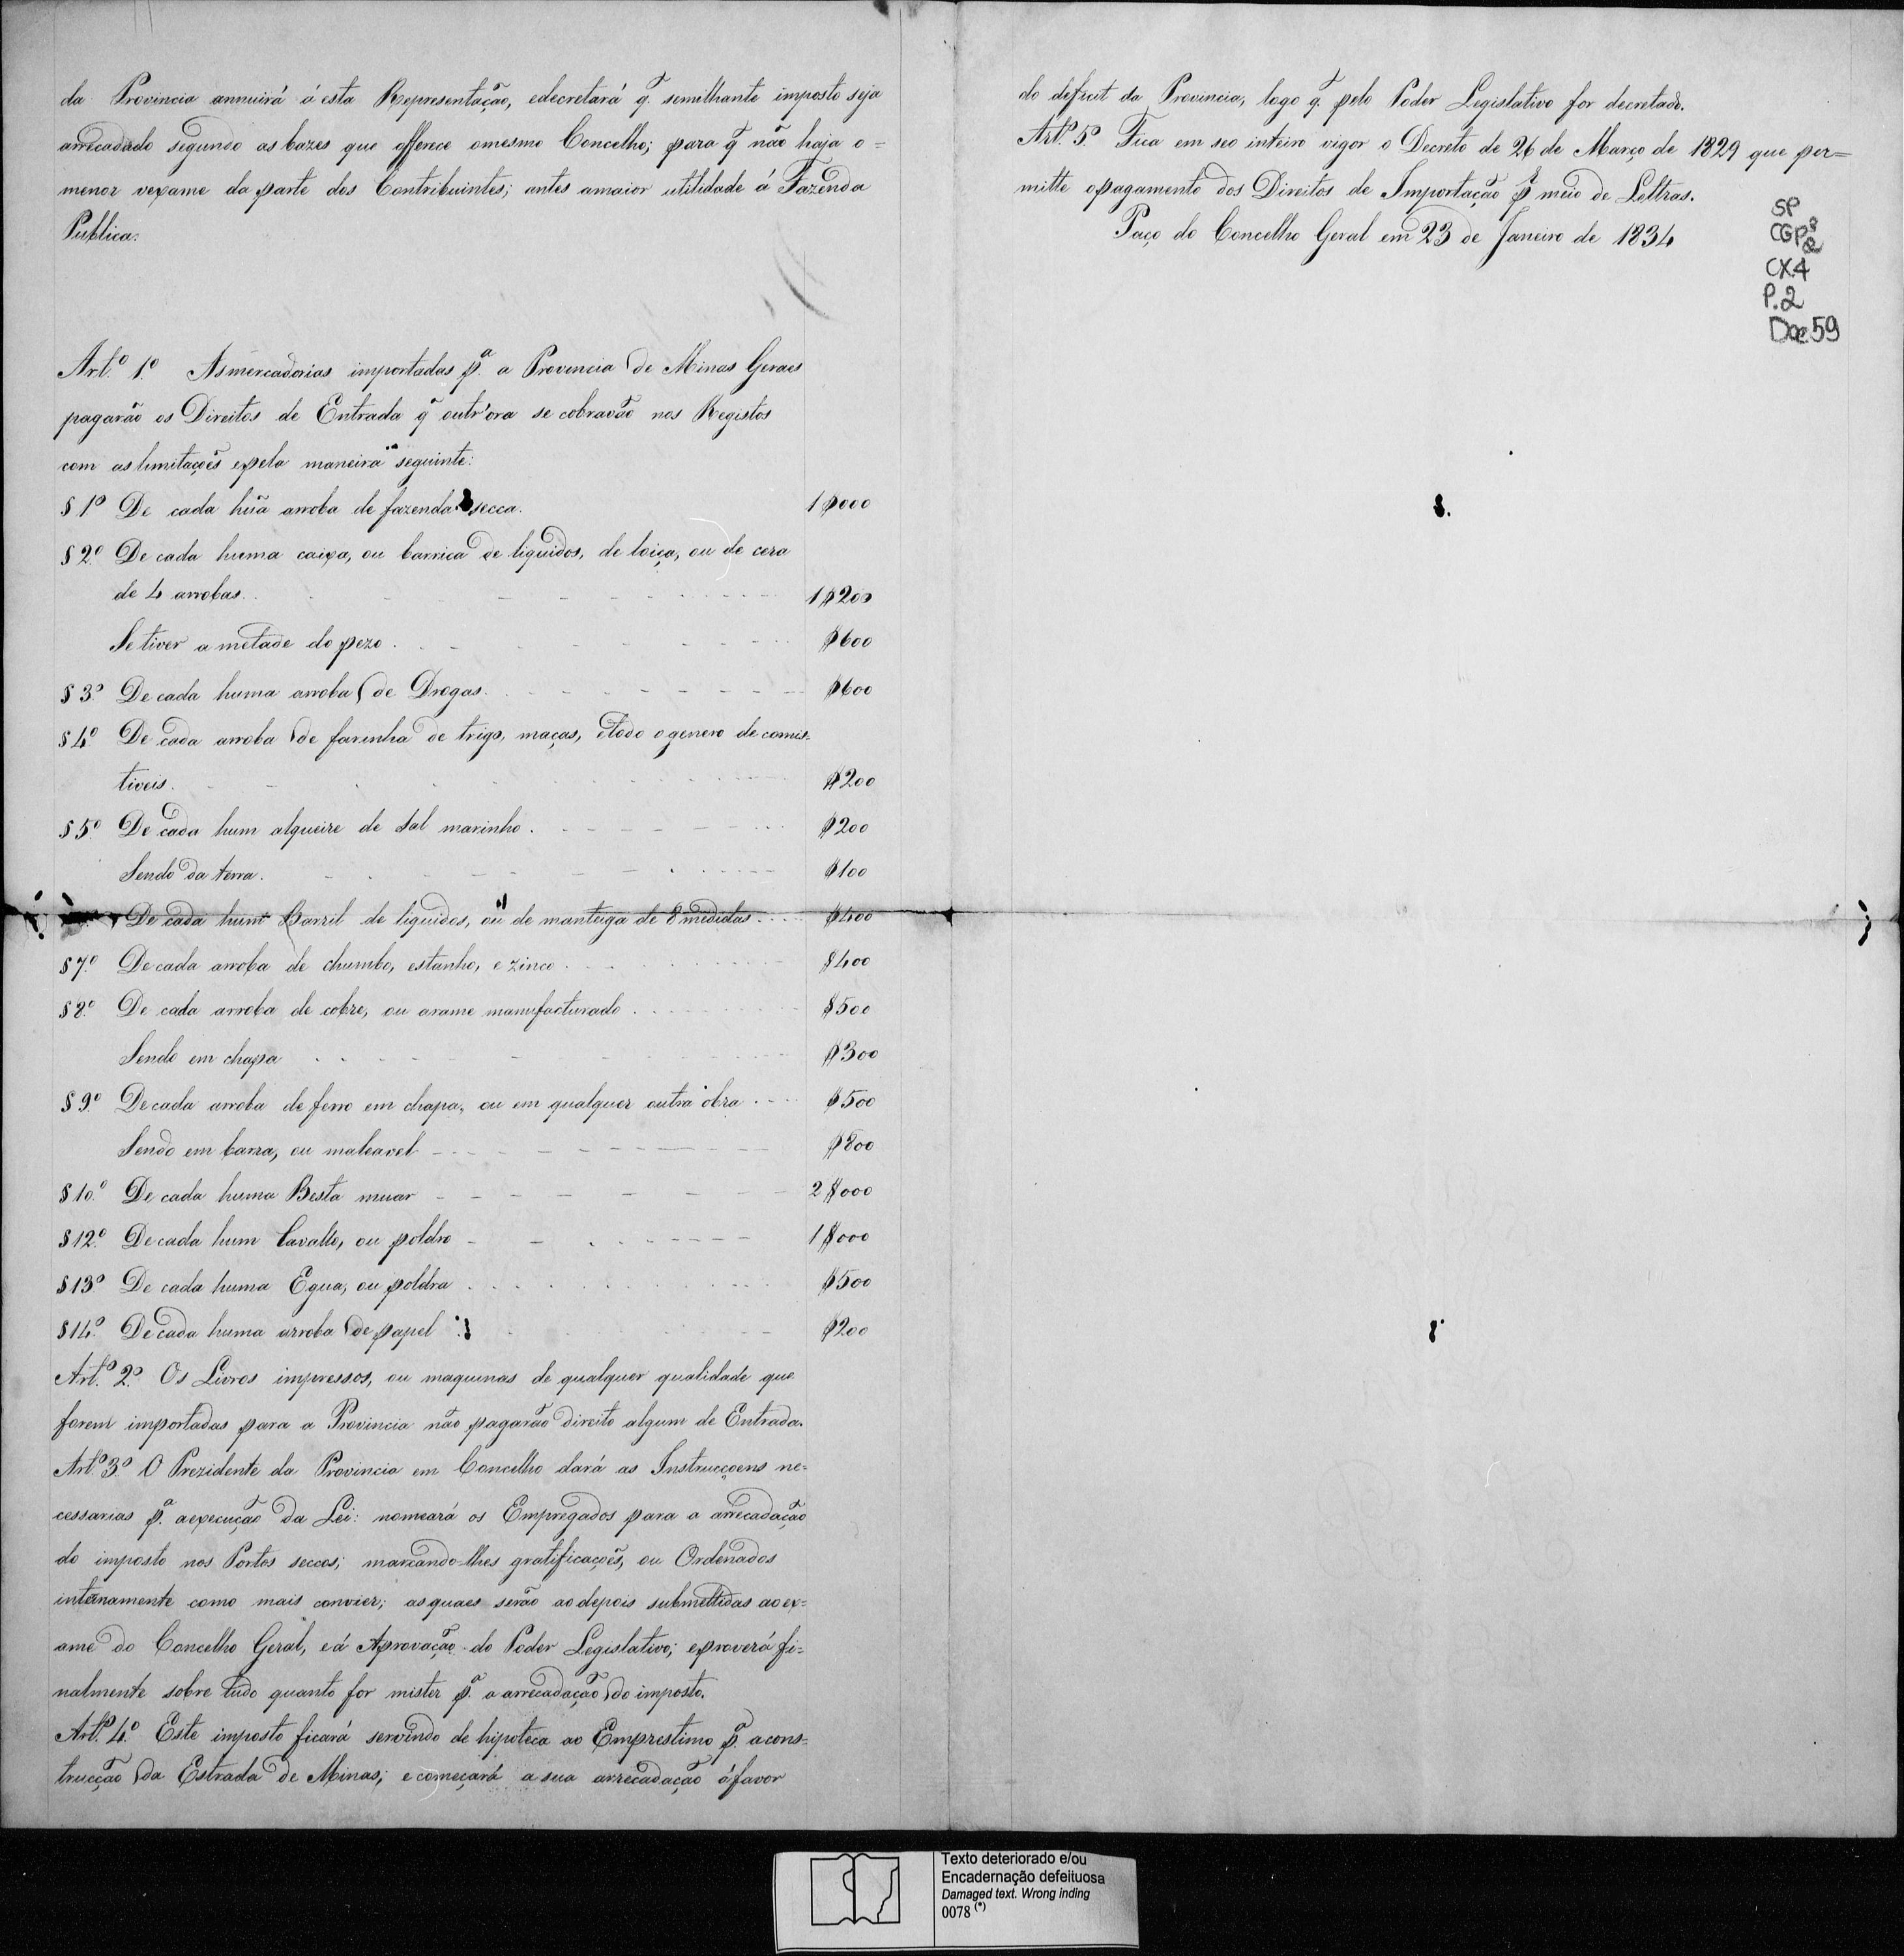 da Provincia annuirá á esta Representação, edecretará q̃. semilhante imposto seja
arrecadado segundo as bazes que offerece omesmo Concelho; para q̃ não haja o =
menor vexame da parte dos Contribuintes; antes amaior utilidade á Fazenda
Publica.
Art.º 1.º As mercadorias importadas p.ª a Provincia de Minas Geraes
pagarão os Direitos de Entrada q̃ outr'ora se cobravão nos Registos
com as limitações epela maneira seguinte:
§ 1º De cada hũa arroba de fazenda secca. 1$000
§ 2.º De cada huma caixa, ou barrica de liquidos, de loiça, ou de cera
de 4 arrobas. 1$200
Se tiver a metade do pezo. $600
§ 3.º De cada huma arroba de Drogas. $600
§ 4.º De cada arroba de farinha de trigo, maças, etodo o genero de comis-
tiveis. $200
§ 5.º De cada hum alqueire de Sal marinho. $200
Sendo da terra. $100
De cada hum Barril de liquidos, ou de manteiga de 8 medidas $400
§ 7.º De cada arroba de chumbo, estanho, e zinco $400
§ 8.º De cada arroba de cobre, ou arame manufacturado $500
Sendo em chapa $300
§ 9.º De cada arroba de ferro em chapa, ou em qualquer outra obra $500
Sendo em barra, ou maleavel $800
§ 10.º De cada huma Besta muar 2$000
§ 12.º De cada hum Cavallo, ou poldro 1$000
§ 13.º De cada huma Egua, ou poldra $500
§ 14.º De cada huma arroba de papel $200
Art.º 2.º Os Livros impressos, ou maquinas de qualquer qualidade que
forem importadas para a Provincia não pagarão direito algum de Entrada.
Art.º 3.º O Prezidente da Provincia em Concelho dará as Instrucçoens ne-
cessarias p.ª aexecução da Lei: nomeará os Empregados para a arrecadação
do imposto nos Portos seccos; marcando-lhes gratificações, ou Ordenados
interinamente como mais convier; as quaes serão ao depois submettidas ao ex=
ame do Concelho Geral, eá Aprovação do Poder Legislativo; eproverá fi-
nalmente sobre tudo quanto for mister p.ª a arrecadação do imposto.
Art.º 4.º Este imposto ficará servindo de hipoteca ao Emprestimo p.ª acons-
trucção da Estrada de Minas; ecomeçará a sua arrecadação áfavor
do deficit da Provincia, logo q̃. pelo Poder Legislativo for decretado.
Art.º 5.º Fica em seo inteiro vigor o Decreto de 26 de Março de 1829 que per=
mitte opagamento dos Direitos de Importação p.r meio de Lettras.
Paço do Concelho Geral em 23 de Janeiro de 1834
SP
CGP
CX.4
P.2
Doc.59
Texto deteriorado e/ou
Encadernação defeituosa
Damaged text. Wrong inding
0078 (*)